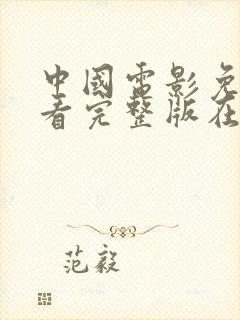 中國电影免
看完整版在
范毅